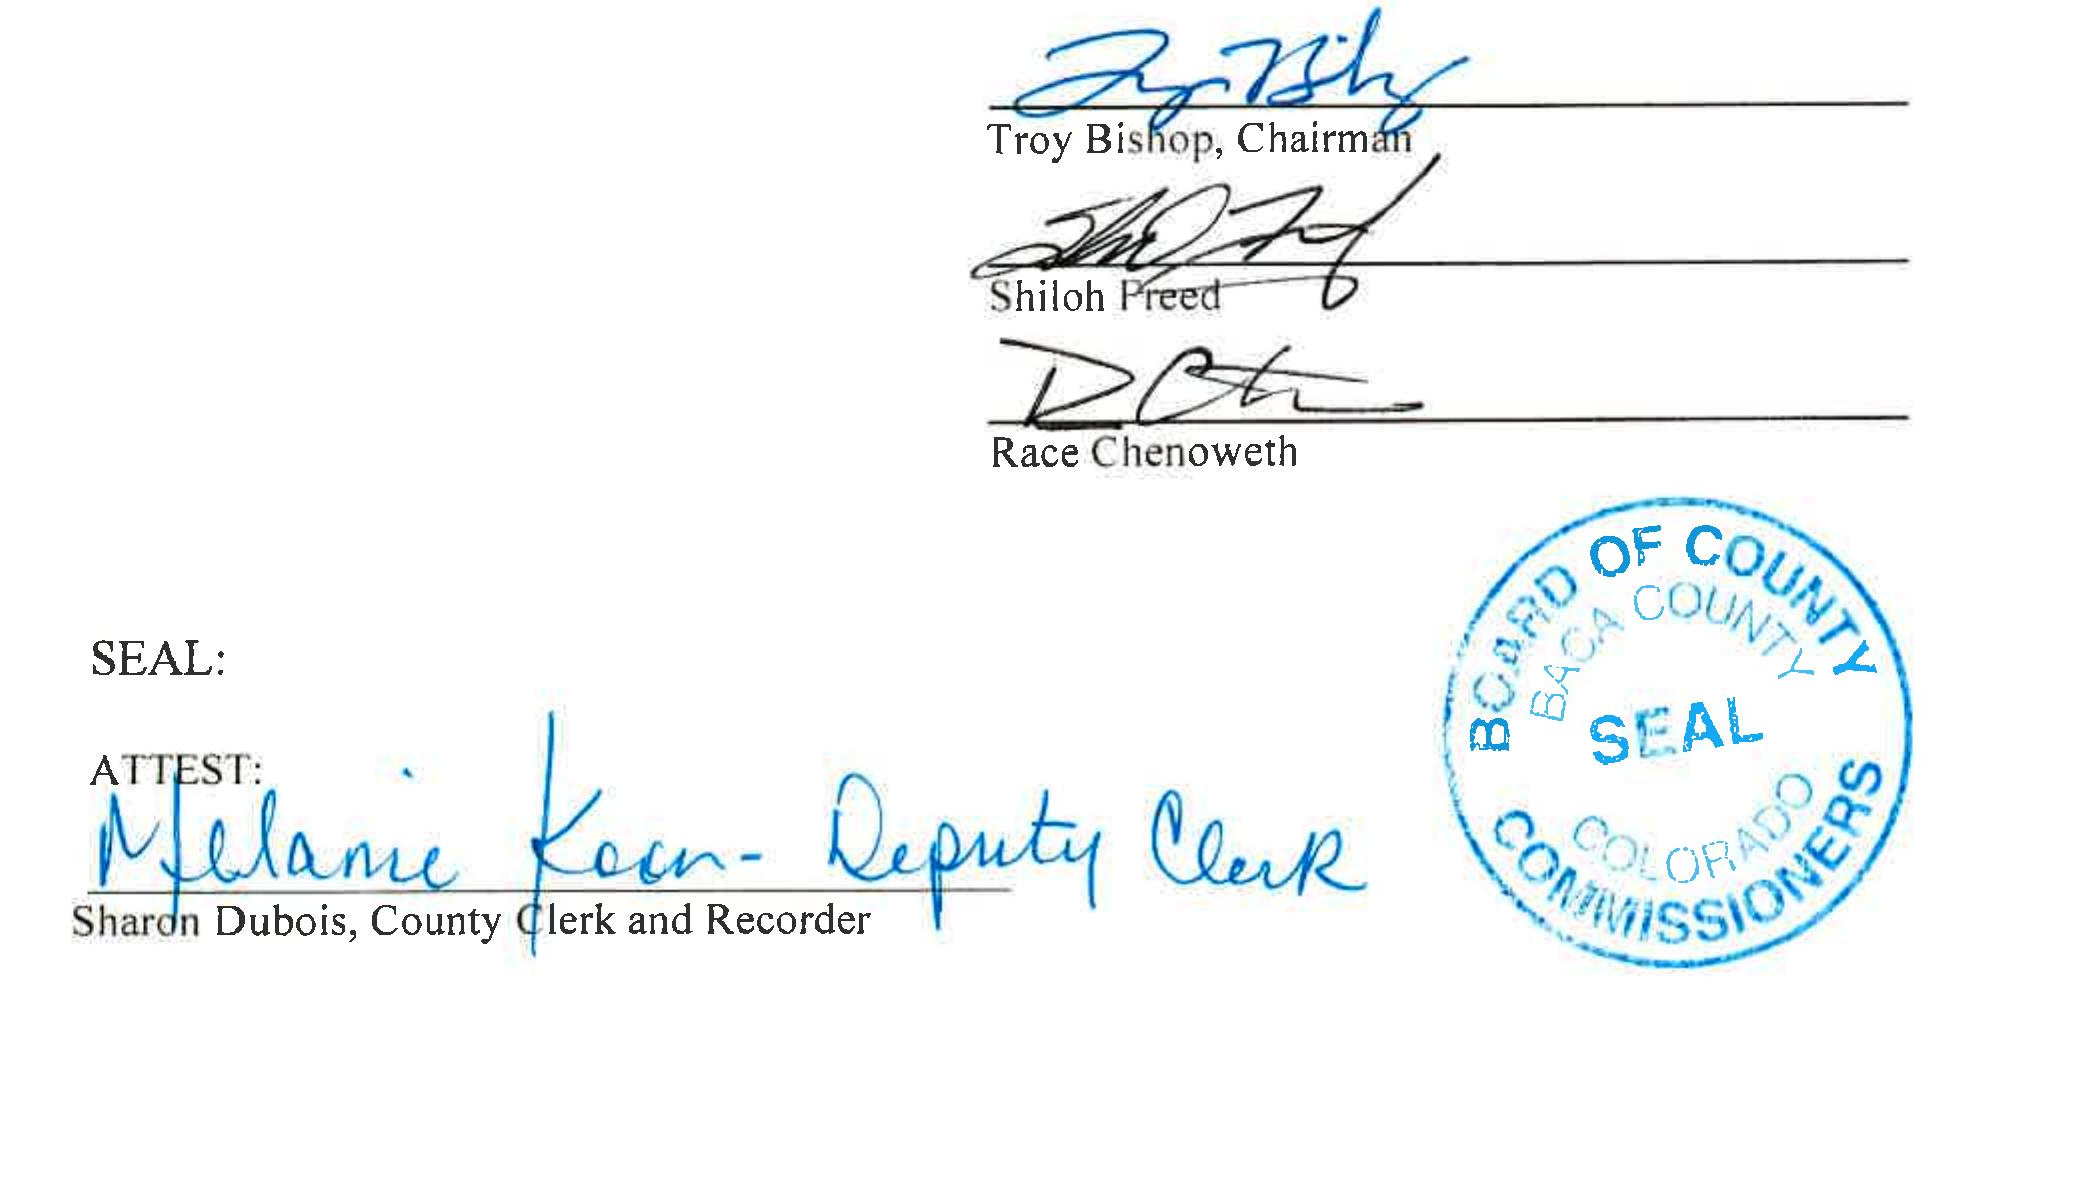 Troy Bishop, Chairman
Shiloh Freed
Race Chenoweth
BOARD OF COUNTY
BACA COUNTY
SEAL
COLORADO
COMMISSIONERS
SEAL:
ATTEST:
Melanie Koon - Deputy Clerk
Sharon Dubois, County Clerk and Recorder